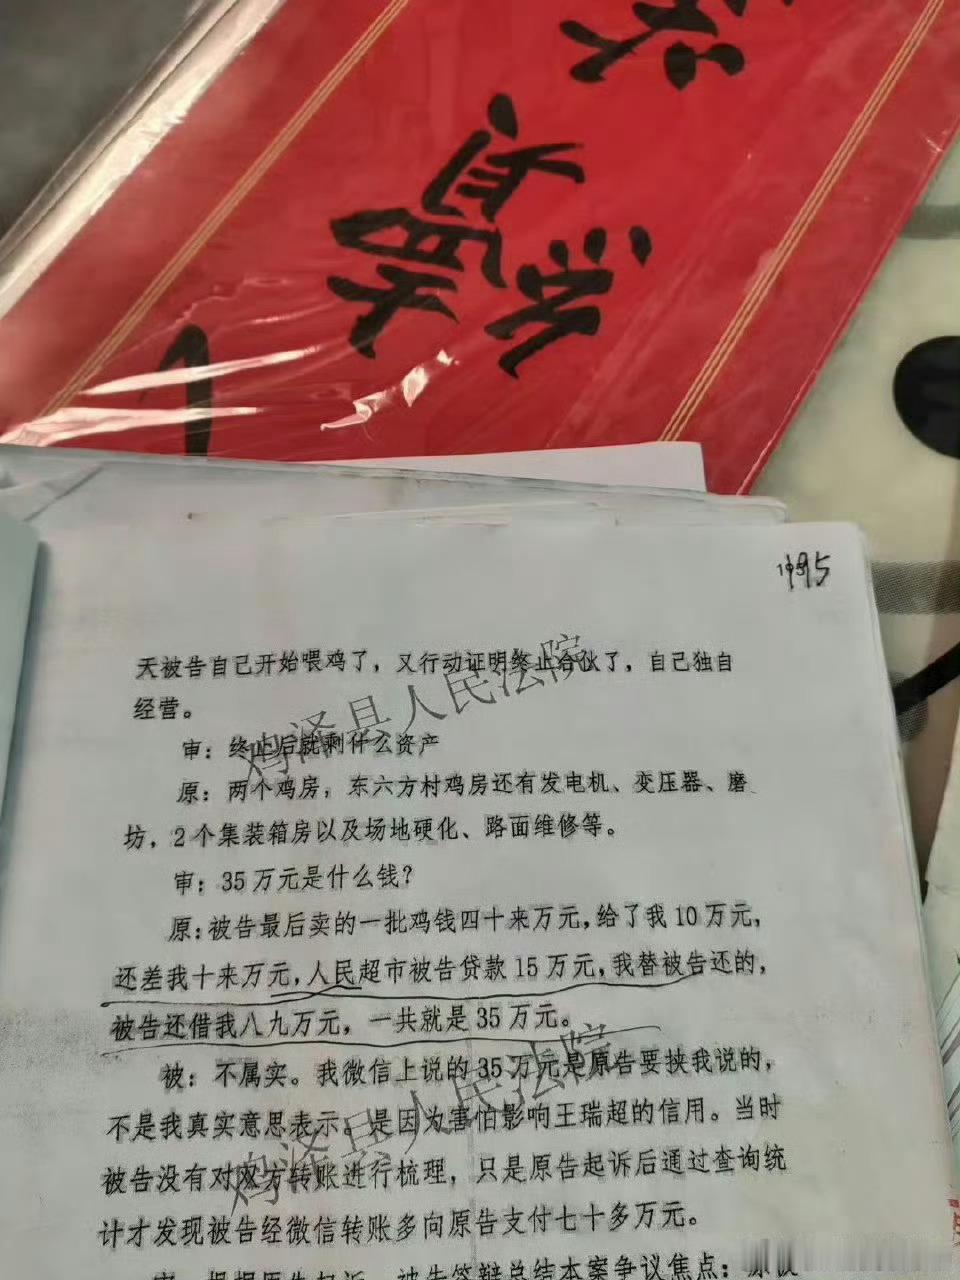 1995
天被告自己开始喂鸡了，又行动证明终止合伙了，自己独自
经营。
审：终止后就剩什么资产
原：两个鸡房，东六方村鸡房还有发电机、变压器、磨
坊，2个集装箱房以及场地硬化、路面维修等。
审：35万元是什么钱？
原：被告最后卖的一批鸡钱四十来万元，给了我10万元，
还差我十来万元，人民超市被告贷款15万元，我替被告还的，
被告还借我八九万元，一共就是35万元。
被：不属实。我微信上说的35万元是原告要挟我说的，
不是我真实意思表示。是因为害怕影响王瑞超的信用。当时
被告没有对双方转账进行梳理，只是原告起诉后通过查询统
计才发现被告经微信转账多向原告支付七十多万元。
审：根据原告起诉、被告答辩总结本案争议焦点：原被
鸡泽县人民法院
鸡泽县人民法院